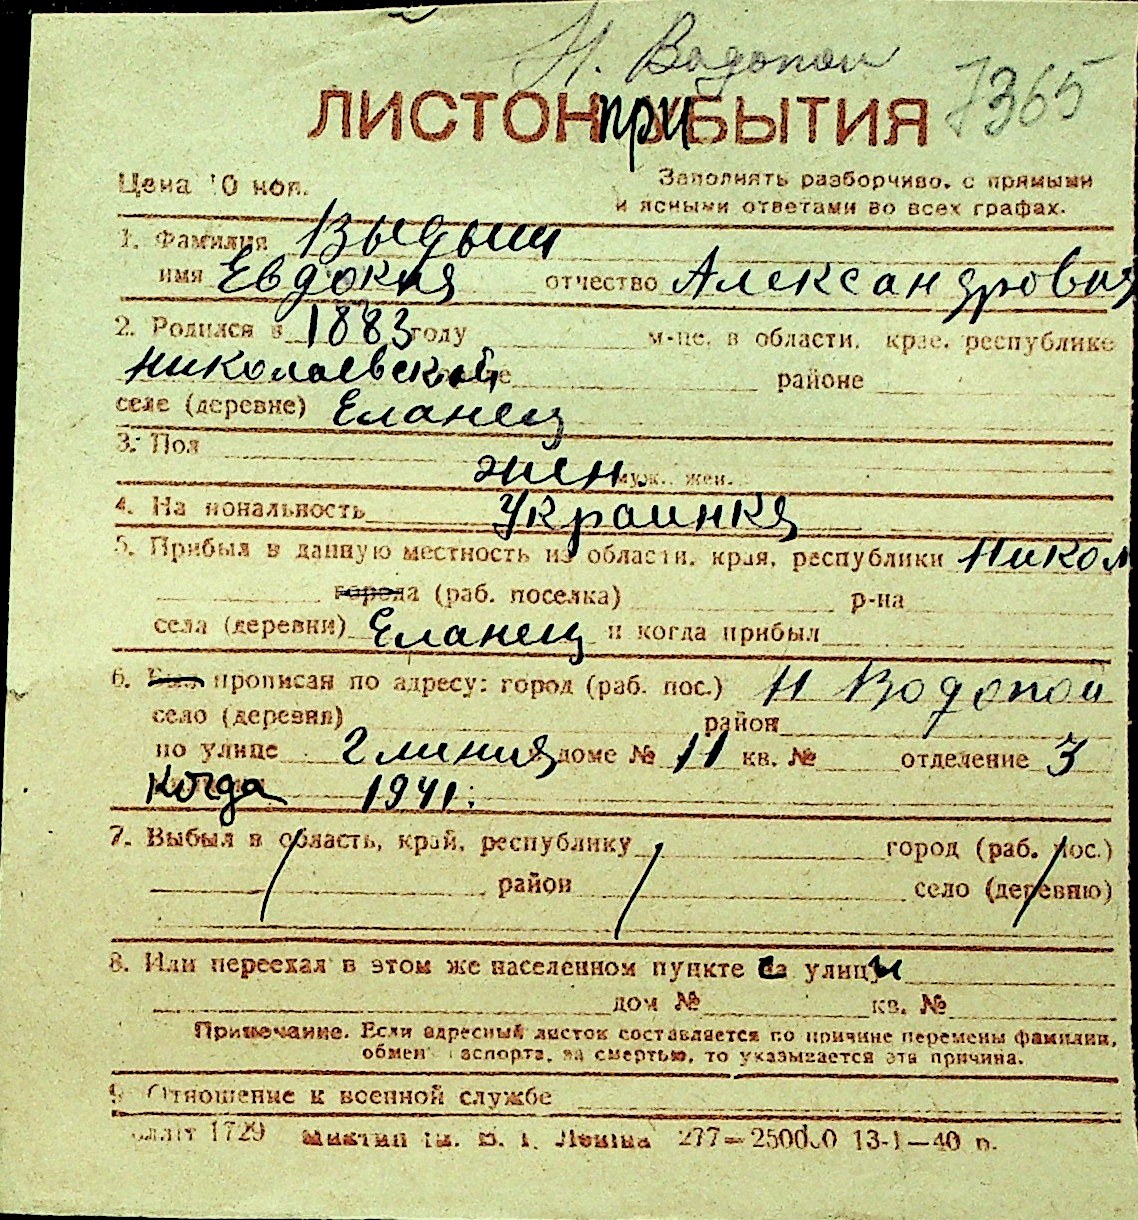 Н. Водопой
7365
ЛИСТОК ПРИБЫТИЯ
Цена 10 коп.
Заполнять разборчиво, с прямыми
и ясными ответами во всех графах.
1. Фамилия Выдыш
имя Евдокия отчество Александровна
2. Родился в 1883 году м-це, в области, крае, республике
николаевской районе
селе (деревне) Еланец
3. Пол
жен. муж., жен.
4. Национальность Украинка
5. Прибыл в данную местность из области, края, республики Никол
города (раб. поселка) р-на
села (деревни) Еланец и когда прибыл
6. Был прописан по адресу: город (раб. пос.) Н Водопой
село (деревня) район
по улице 2 линия доме № 11 кв. № отделение 3
когда 1941.
7. Выбыл в область, край, республику город (раб. пос.)
район село (деревню)
8. Или переехал в этом же населенном пункте с улицы
дом № кв. №
Примечание. Если адресный листок составляется по причине перемены фамилии,
обмен паспорта, за смертью, то указывается эта причина.
9. Отношение к военной службе
1729 Ленина 277— 13-1—40 р.